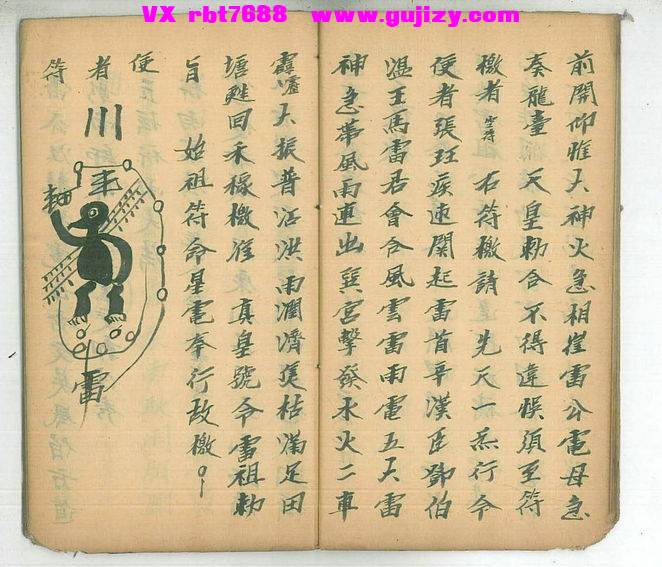 VX rbt7688 www.gujizy.com
前開仰惟大神火急相崔雷公電母急
奏龍臺天皇勅合不得違悞須至符
檄者 空符 右符檄請先天一炁行令
使者張珏疾速関起雷首辛漢臣鄧伯
温王馬雷君會合風雲雷雨電五大雷
神急帶風雨速出巽宮擊發水火二車
霹靂大振普沾洪雨潤濟焦枯滿足田
塘甦回禾稼檄准 真皇號令雷祖勅
旨 始祖符命星電奉行故檄
使
者
符
雷